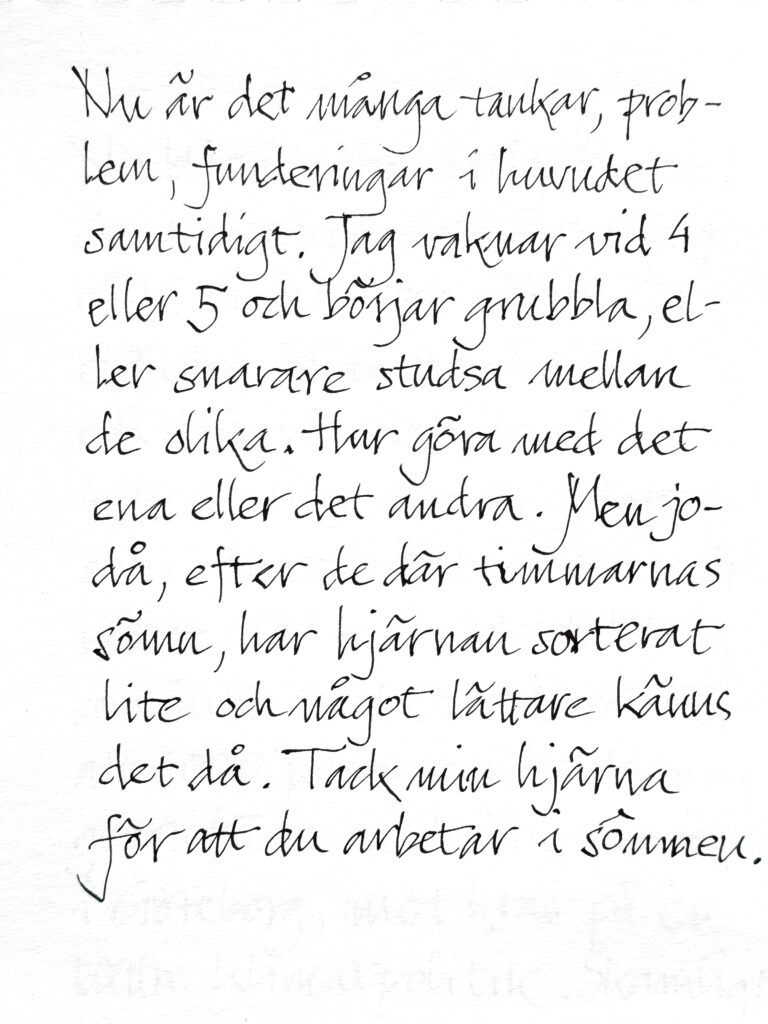 Nu är det många tankar, prob-
lem, funderingar i huvudet
samtidigt. Jag vaknar vid 4
eller 5 och börjar grubbla, el-
ler snarare studsa mellan
de olika. Hur göra med det
ena eller det andra. Men jo-
då, efter de där timmarnas
sömn, har hjärnan sorterat
lite och något lättare känns
det då. Tack min hjärna
för att du arbetar i sömnen.